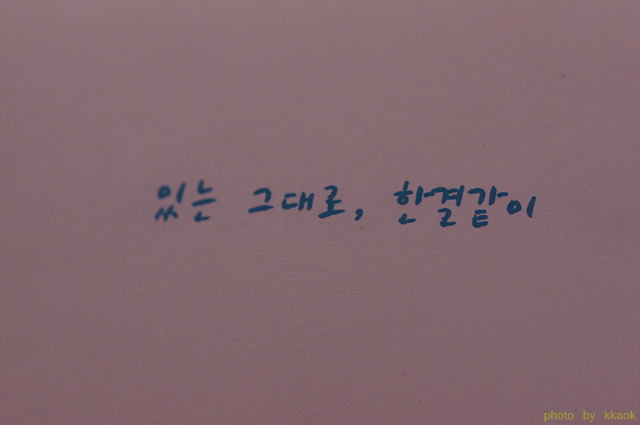 있는 그대로, 한결같이
photo by kkaok